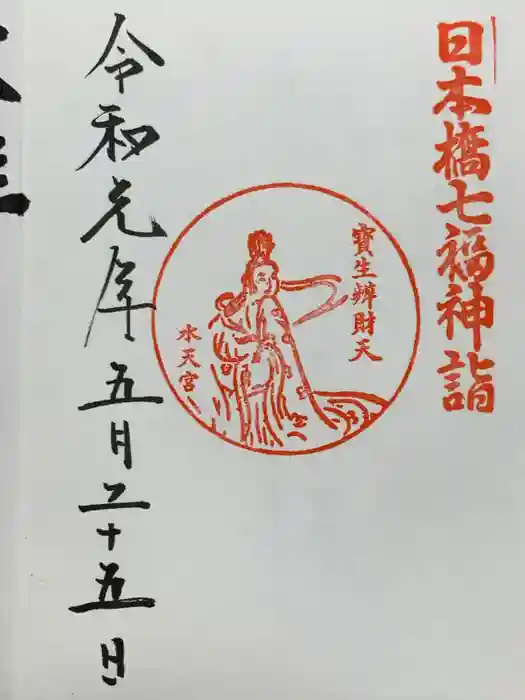 日本橋七福神詣
寶生辨財天
水天宮
令和元年五月二十五日